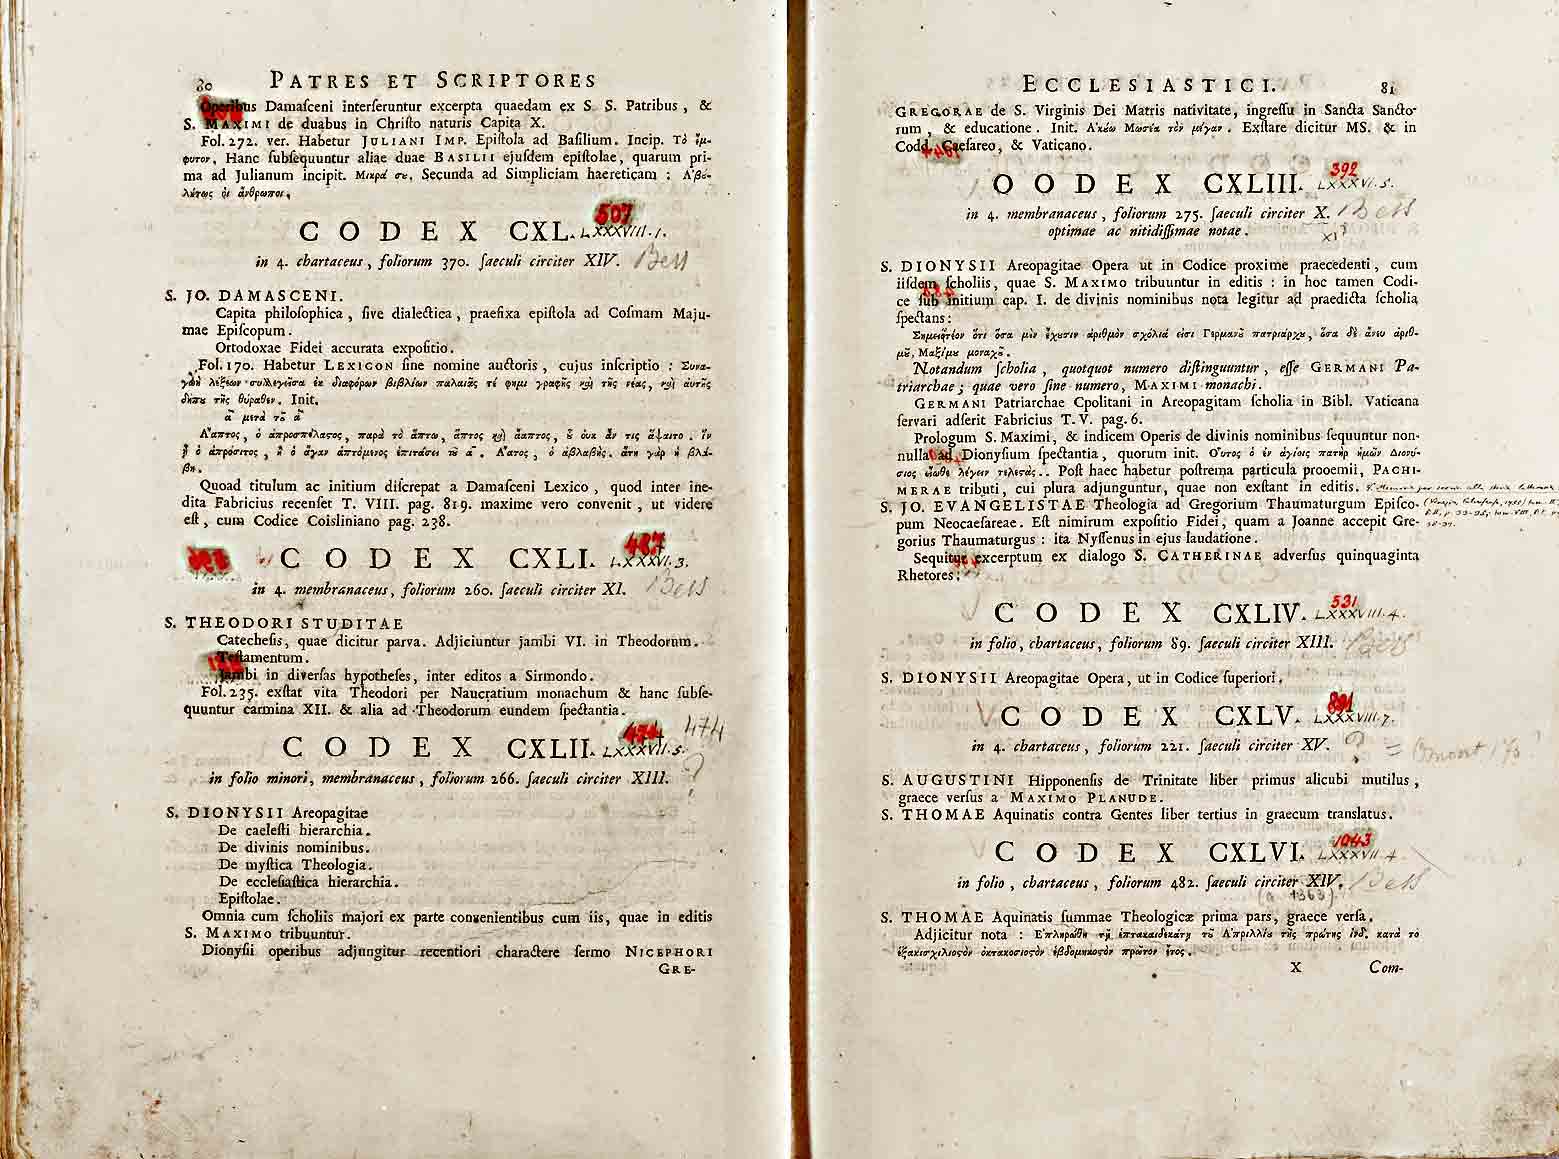 80 PATRES ET SCRIPTORES
Operibus Damaſceni interſeruntur excerpta quaedam ex S. S. Patribus, &
S. MAXIMI de duabus in Chriſto naturis Capita X.
Fol. 272. ver. Habetur JULIANI IMP. Epiſtola ad Baſilium. Incip. Τὸ ἔμ-
φυτον. Hanc ſubſequuntur aliae duae BASILII ejuſdem epiſtolae, quarum pri-
ma ad Julianum incipit. Μικρά σε. Secunda ad Simpliciam haereticam : Ἀβε-
λήτως οἱ ἄνθρωποι.
CODEX CXL. 507 LXXXVIII. 1.
in 4. chartaceus, foliorum 370. ſaeculi circiter XIV. Bess
S. JO. DAMASCENI.
Capita philoſophica, ſive dialectica, praefixa epiſtola ad Coſmam Maju-
mae Epiſcopum.
Ortodoxae Fidei accurata expoſitio.
Fol. 170. Habetur LEXICON ſine nomine auctoris, cujus inſcriptio : Συνα-
γωγὴ λέξεων συλλεγεῖσα ἐκ διαφόρων βιβλίων παλαιᾶς τέ φημι γραφῆς καὶ τῆς νέας, καὶ αὐτῆς
δήπε τῆς θύραθεν. Init.
α μετὰ τοῦ α
Ἄαπτος, ὁ ἀπροσπέλαστος, παρὰ τὸ ἅπτω, ἅπτος καὶ ἄαπτος, οὗ οὐκ ἄν τις ἅψαιτο. ἵν
ᾖ ὁ ἀπρόσιτος, ἢ ὁ ἄγαν ἁπτόμενος ἐπιτάσει τοῦ α. Ἄατος, ὁ ἀβλαβής. ἄτη γὰρ ἡ βλά-
βη.
Quoad titulum ac initium diſcrepat a Damaſceni Lexico, quod inter ine-
dita Fabricius recenſet T. VIII. pag. 819. maxime vero convenit, ut videre
eſt, cum Codice Coisliniano pag. 238.
CODEX CXLI. 487 LXXXVI. 3.
in 4. membranaceus, foliorum 260. ſaeculi circiter XI. Bess
S. THEODORI STUDITAE
Catecheſis, quae dicitur parva. Adjiciuntur jambi VI. in Theodorum.
Teſtamentum.
Jambi in diverſas hypotheſes, inter editos a Sirmondo.
Fol. 235. exſtat vita Theodori per Naucratium monachum & hanc ſubſe-
quuntur carmina XII. & alia ad Theodorum eundem ſpectantia.
CODEX CXLII. 474 LXXXVII. 5. 474
in folio minori, membranaceus, foliorum 266. ſaeculi circiter XIII. ?
S. DIONYSII Areopagitae
De caeleſti hierarchia.
De divinis nominibus.
De myſtica Theologia.
De eccleſiaſtica hierarchia.
Epiſtolae.
Omnia cum ſcholiis majori ex parte conuenientibus cum iis, quae in editis
S. MAXIMO tribuuntur.
Dionyſii operibus adjungitur recentiori charactere ſermo NICEPHORI
GRE-
ECCLESIASTICI. 81
GREGORAE de S. Virginis Dei Matris nativitate, ingreſſu in Sancta Sancto-
rum, & educatione. Init. Ἀκέω Μωσέα τὸν μέγαν. Exſtare dicitur MS. & in
Codd. Caeſareo, & Vaticano.
OODEX CXLIII. 392 LXXXVI. 5.
in 4. membranaceus, foliorum 275. ſaeculi circiter X. Bess
optimae ac nitidiſſimae notae. XI?
S. DIONYSII Areopagitae Opera ut in Codice proxime praecedenti, cum
iiſdem ſcholiis, quae S. MAXIMO tribuuntur in editis : in hoc tamen Codi-
ce ſub initium cap. I. de divinis nominibus nota legitur ad praedicta ſcholia
ſpectans :
Σημειωτέον ὅτι ὅσα μὲν ἔχουσιν ἀριθμὸν σχόλιά εἰσι Γερμανοῦ πατριάρχου, ὅσα δὲ ἄνευ ἀριθ-
μοῦ, Μαξίμου μοναχοῦ.
Notandum ſcholia, quotquot numero diſtinguuntur, eſſe GERMANI Pa-
triarchae ; quae vero ſine numero, MAXIMI monachi.
GERMANI Patriarchae Cpolitani in Areopagitam ſcholia in Bibl. Vaticana
ſervari adſerit Fabricius T. V. pag. 6.
Prologum S. Maximi, & indicem Operis de divinis nominibus ſequuntur non-
nulla ad Dionyſium ſpectantia, quorum init. Οὗτος ὁ ἐν ἁγίοις πατὴρ ἡμῶν Διονύ-
σιος εἴωθε λέγειν τελετάς.. Poſt haec habetur poſtrema particula prooemii, PACHI-
MERAE tributi, cui plura adjunguntur, quae non exſtant in editis.
S. JO. EVANGELISTAE Theologia ad Gregorium Thaumaturgum Epiſco-
pum Neocaeſareae. Eſt nimirum expoſitio Fidei, quam a Joanne accepit Gre-
gorius Thaumaturgus : ita Nyſſenus in ejus laudatione.
Sequitur excerptum ex dialogo S. CATHERINAE adverſus quinquaginta
Rhetores.
CODEX CXLIV. 531 LXXXVIII. 4.
in folio, chartaceus, foliorum 89. ſaeculi circiter XIII. Bess
S. DIONYSII Areopagitae Opera, ut in Codice ſuperiori.
CODEX CXLV. 801 LXXXVIII. 7.
in 4. chartaceus, foliorum 221. ſaeculi circiter XV. ? = Omont 173
S. AUGUSTINI Hipponenſis de Trinitate liber primus alicubi mutilus,
graece verſus a MAXIMO PLANUDE.
S. THOMAE Aquinatis contra Gentes liber tertius in graecum translatus.
CODEX CXLVI. 1043 LXXXVII. 4
in folio, chartaceus, foliorum 482. ſaeculi circiter XIV. Bess
(a 1363)
S. THOMAE Aquinatis ſummae Theologicæ prima pars, graece verſa.
Adjicitur nota : Ἐπληρώθη τῇ ἑπτακαιδεκάτῃ τοῦ Ἀπριλλίου τῆς πρώτης Ἰνδ. κατὰ τὸ
ἑξακισχιλιοστὸν ὀκτακοσιοστὸν ἑβδομηκοστὸν πρῶτον ἔτος.
X Com-